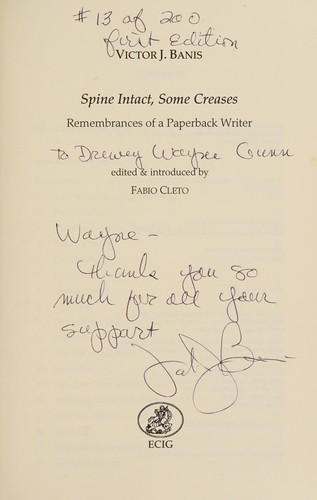 #13 of 200
first edition
VICTOR J. BANIS
Spine Intact, Some Creases
Remembrances of a Paperback Writer
To Drewey Wayne Gunn
edited & introduced by
FABIO CLETO
Wayne –
thanks you so
much for all your
support
ECIG